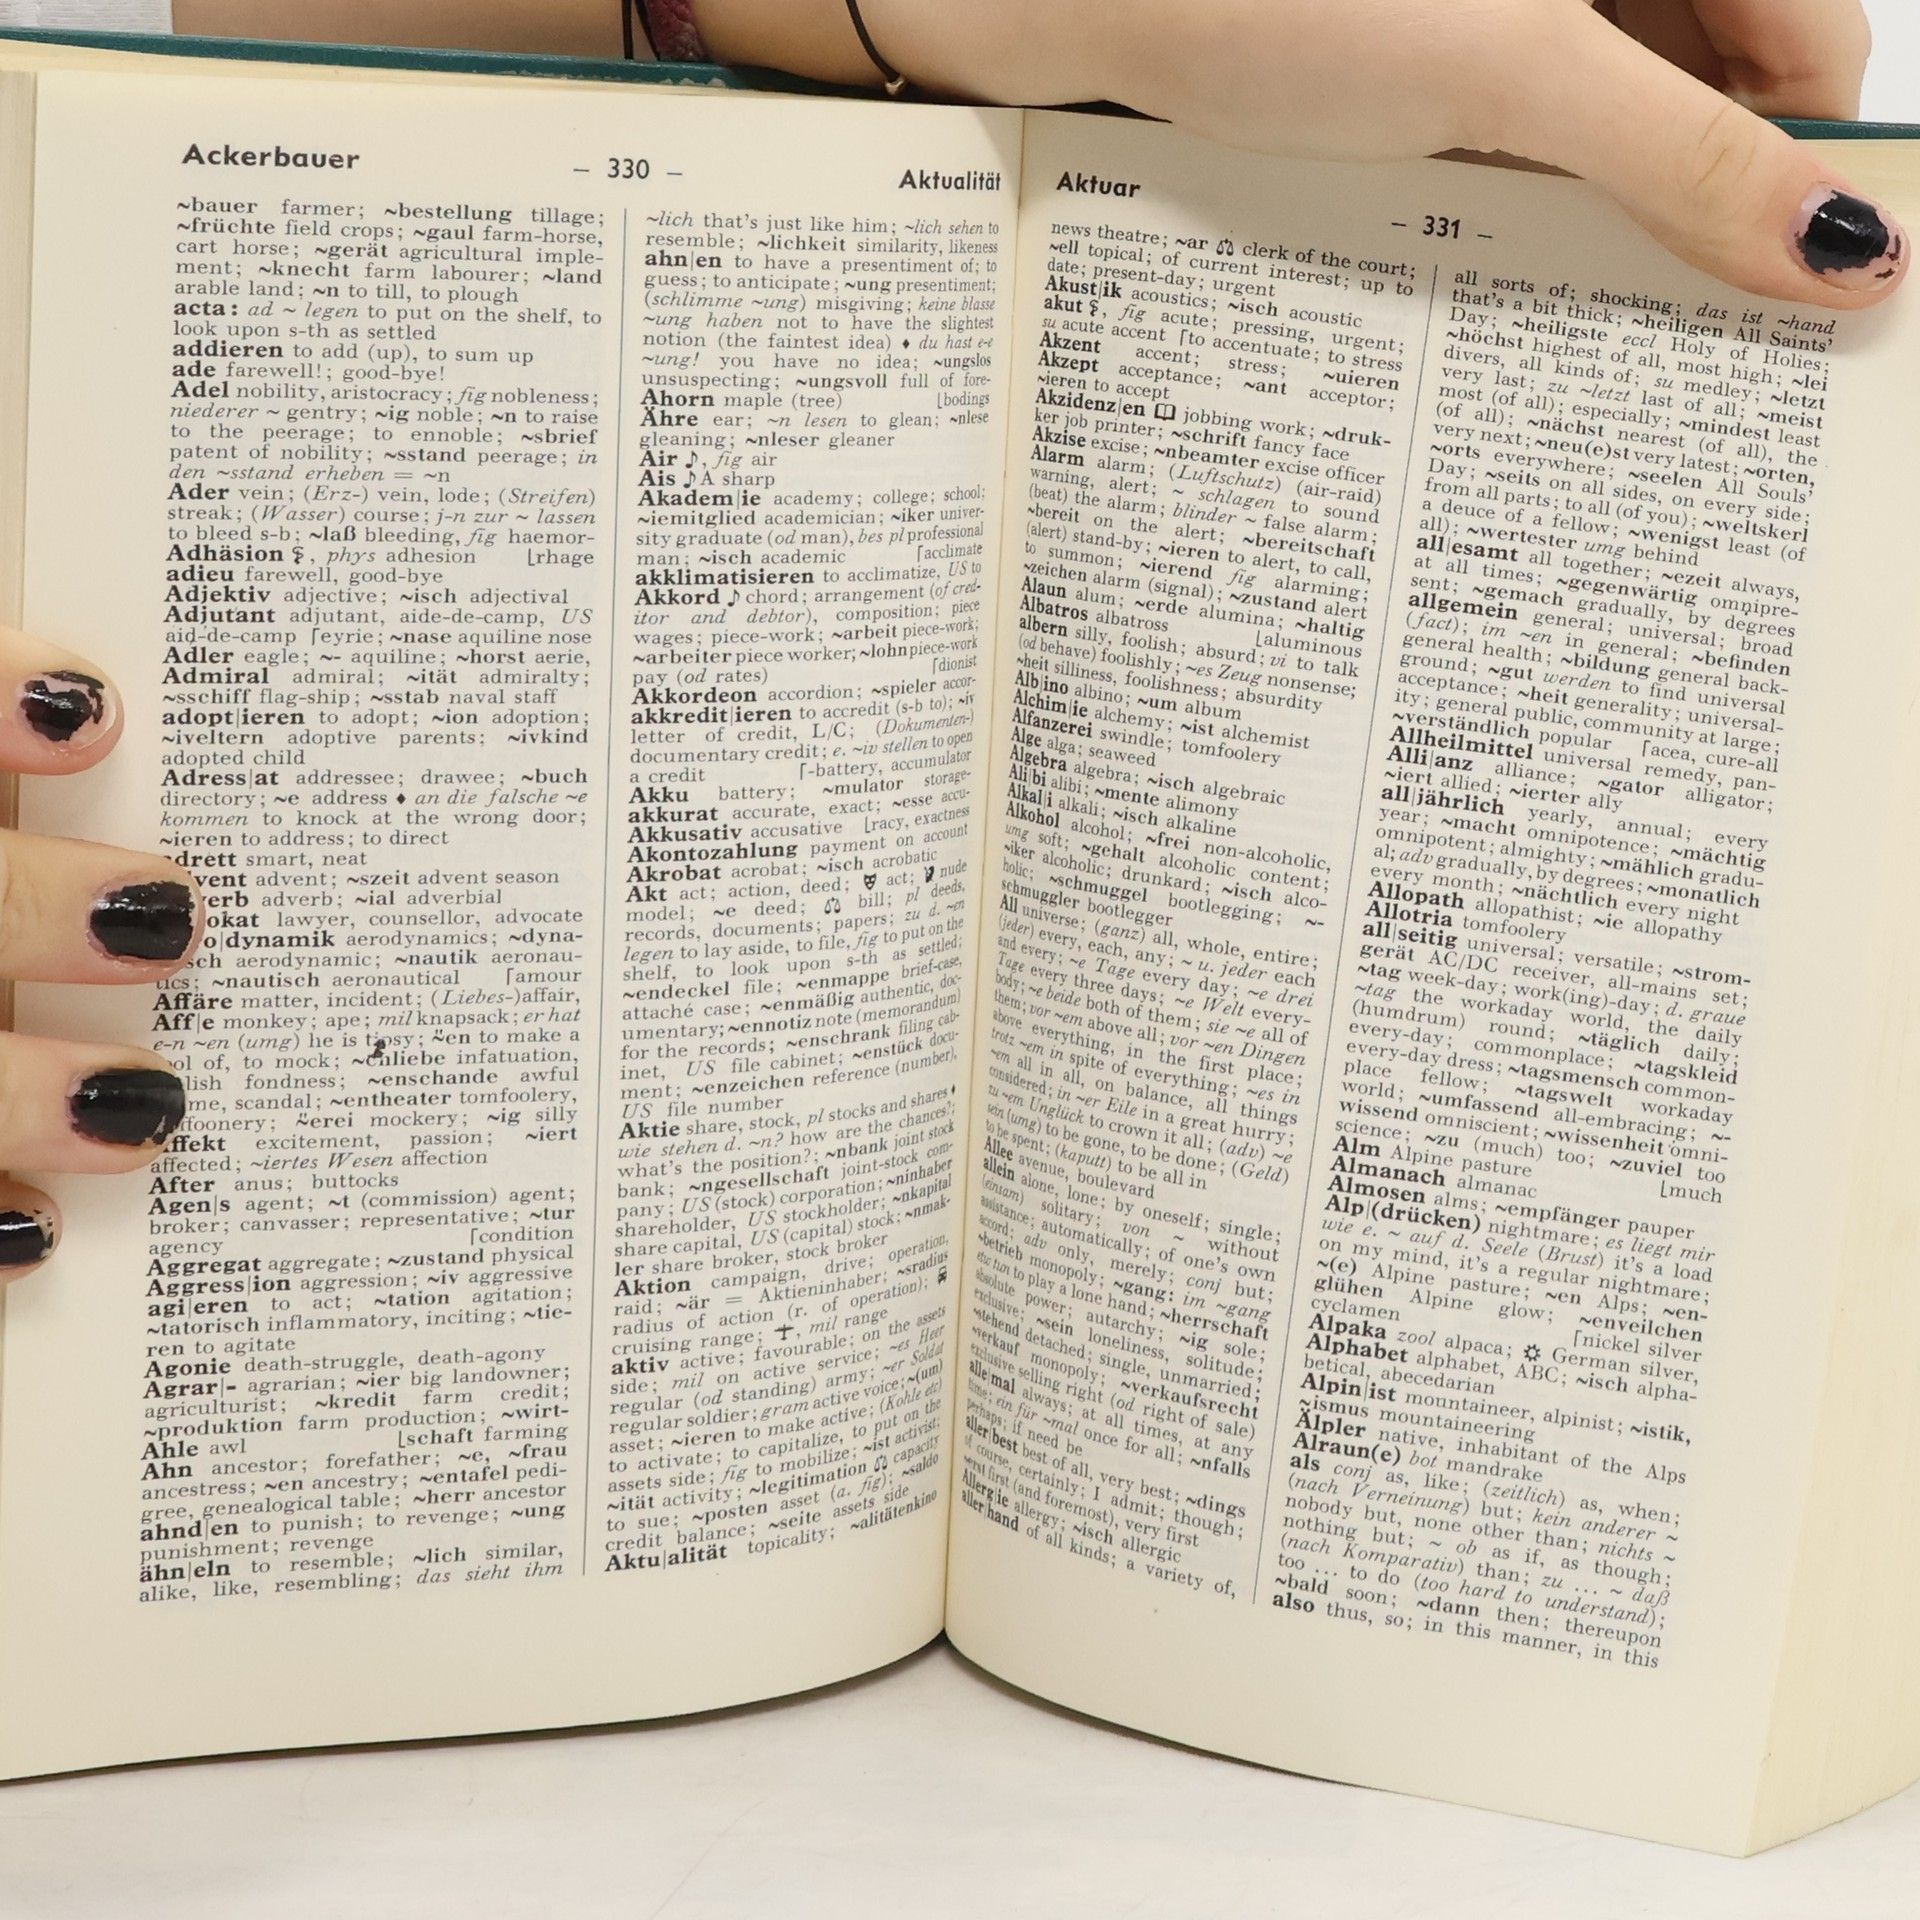 Ackerbauer
– 330 –
Aktualität
~bauer farmer; ~bestellung tillage;
~früchte field crops; ~gaul farm-horse,
cart horse; ~gerät agricultural imple-
ment; ~knecht farm labourer; ~land
arable land; ~n to till, to plough
acta: ad ~ legen to put on the shelf, to
look upon s-th as settled
addieren to add (up), to sum up
ade farewell!; good-bye!
Adel nobility, aristocracy; fig nobleness;
niederer ~ gentry; ~ig noble; ~n to raise
to the peerage; to ennoble; ~sbrief
patent of nobility; ~sstand peerage; in
den ~sstand erheben = ~n
Ader vein; (Erz-) vein, lode; (Streifen)
streak; (Wasser) course; j-n zur ~ lassen
to bleed s-b; ~laß bleeding, fig haemor-
Adhäsion ⚕, phys adhesion ⌊rhage
adieu farewell, good-bye
Adjektiv adjective; ~isch adjectival
Adjutant adjutant, aide-de-camp, US
aid-de-camp ⌈eyrie; ~nase aquiline nose
Adler eagle; ~- aquiline; ~horst aerie,
Admiral admiral; ~ität admiralty;
~sschiff flag-ship; ~sstab naval staff
adopt|ieren to adopt; ~ion adoption;
~iveltern adoptive parents; ~ivkind
adopted child
Adress|at addressee; drawee; ~buch
directory; ~e address ♦ an die falsche ~e
kommen to knock at the wrong door;
~ieren to address; to direct
drett smart, neat
vent advent; ~szeit advent season
verb adverb; ~ial adverbial
okat lawyer, counsellor, advocate
o|dynamik aerodynamics; ~dyna-
sch aerodynamic; ~nautik aeronau-
tics; ~nautisch aeronautical ⌈amour
Affäre matter, incident; (Liebes-)affair,
Aff|e monkey; ape; mil knapsack; er hat
e-n ~en (umg) he is tipsy; ~̈en to make a
ol of, to mock; ~enliebe infatuation,
lish fondness; ~enschande awful
me, scandal; ~entheater tomfoolery,
ffoonery; ~̈erei mockery; ~ig silly
ffekt excitement, passion; ~iert
affected; ~iertes Wesen affection
After anus; buttocks
Agen|s agent; ~t (commission) agent;
broker; canvasser; representative; ~tur
agency ⌈condition
Aggregat aggregate; ~zustand physical
Aggress|ion aggression; ~iv aggressive
agi|eren to act; ~tation agitation;
~tatorisch inflammatory, inciting; ~tie-
ren to agitate
Agonie death-struggle, death-agony
Agrar|- agrarian; ~ier big landowner;
agriculturist; ~kredit farm credit;
~produktion farm production; ~wirt-
Ahle awl ⌊schaft farming
Ahn ancestor; forefather; ~e, ~frau
ancestress; ~en ancestry; ~entafel pedi-
gree, genealogical table; ~herr ancestor
ahnd|en to punish; to revenge; ~ung
punishment; revenge
ähn|eln to resemble; ~lich similar,
alike, like, resembling; das sieht ihm
~lich that's just like him; ~lich sehen to
resemble; ~lichkeit similarity, likeness
ahn|en to have a presentiment of; to
guess; to anticipate; ~ung presentiment;
(schlimme ~ung) misgiving; keine blasse
~ung haben not to have the slightest
notion (the faintest idea) ♦ du hast e-e
~ung! you have no idea; ~ungslos
unsuspecting; ~ungsvoll full of fore-
Ahorn maple (tree) ⌊bodings
Ähre ear; ~n lesen to glean; ~nlese
gleaning; ~nleser gleaner
Air ♪, fig air
Ais ♪ A sharp
Akadem|ie academy; college; school;
~iemitglied academician; ~iker univer-
sity graduate (od man), bes pl professional
man; ~isch academic ⌈acclimate
akklimatisieren to acclimatize, US to
Akkord ♪ chord; arrangement (of cred-
itor and debtor), composition; piece
wages; piece-work; ~arbeit piece-work;
~arbeiter piece worker; ~lohn piece-work
pay (od rates) ⌈dionist
Akkordeon accordion; ~spieler accor-
akkredit|ieren to accredit (s-b to); ~iv
letter of credit, L/C; (Dokumenten-)
documentary credit; e. ~iv stellen to open
a credit ⌈-battery, accumulator
Akku battery; ~mulator storage-
akkurat accurate, exact; ~esse accu-
Akkusativ accusative ⌊racy, exactness
Akontozahlung payment on account
Akrobat acrobat; ~isch acrobatic
Akt act; action, deed; act; nude
model; ~e deed; ⚖ bill; pl deeds,
records, documents; papers; zu d. ~en
legen to lay aside, to file, fig to put on the
shelf, to look upon s-th as settled;
~endeckel file; ~enmappe brief-case,
attaché case; ~enmäßig authentic, doc-
umentary; ~ennotiz note (memorandum)
for the records; ~enschrank filing cab-
inet, US file cabinet; ~enstück docu-
ment; ~enzeichen reference (number),
US file number
Aktie share, stock, pl stocks and shares ♦
wie stehen d. ~n? how are the chances?;
what's the position?; ~nbank joint stock
bank; ~ngesellschaft joint-stock com-
pany; US (stock) corporation; ~ninhaber
shareholder, US stockholder; ~nkapital
share capital, US (capital) stock; ~nmak-
ler share broker, stock broker
Aktion campaign, drive; operation,
raid; ~är = Aktieninhaber; ~sradius
radius of action (r. of operation);
cruising range; mil range
aktiv active; favourable; on the assets
side; mil on active service; ~es Heer
regular (od standing) army; ~er Soldat
regular soldier; gram active voice; ~(um)
asset; ~ieren to make active; (Kohle etc)
to activate; to capitalize, to put on the
assets side; fig to mobilize; ~ist activist;
~ität activity; ~legitimation ⚖ capacity
to sue; ~posten asset (a. fig); ~saldo
credit balance; ~seite assets side
Aktu|alität topicality; ~alitätenkino
Aktuar
– 331 –
news theatre; ~ar ⚖ clerk of the court;
~ell topical; of current interest; up to
date; present-day; urgent
Akust|ik acoustics; ~isch acoustic
akut ⚕, fig acute; pressing, urgent;
su acute accent ⌈to accentuate; to stress
Akzent accent; stress; ~uieren
Akzept acceptance; ~ant acceptor;
~ieren to accept
Akzidenz|en 🕮 jobbing work; ~druk-
ker job printer; ~schrift fancy face
Akzise excise; ~nbeamter excise officer
Alarm alarm; (Luftschutz) (air-raid)
warning, alert; ~ schlagen to sound
(beat) the alarm; blinder ~ false alarm;
~bereit on the alert; ~bereitschaft
(alert) stand-by; ~ieren to alert, to call,
to summon; ~ierend fig alarming;
~zeichen alarm (signal); ~zustand alert
Alaun alum; ~erde alumina; ~haltig
Albatros albatross ⌊aluminous
albern silly, foolish; absurd; vi to talk
(od behave) foolishly; ~es Zeug nonsense;
~heit silliness, foolishness; absurdity
Alb|ino albino; ~um album
Alchim|ie alchemy; ~ist alchemist
Alfanzerei swindle; tomfoolery
Alge alga; seaweed
Algebra algebra; ~isch algebraic
Ali|bi alibi; ~mente alimony
Alkal|i alkali; ~isch alkaline
Alkohol alcohol; ~frei non-alcoholic,
umg soft; ~gehalt alcoholic content;
~iker alcoholic; drunkard; ~isch alco-
holic; ~schmuggel bootlegging; ~-
schmuggler bootlegger
All universe; (ganz) all, whole, entire;
(jeder) every, each, any; ~ u. jeder each
and every; ~e Tage every day; ~e drei
Tage every three days; ~e Welt every-
body; ~e beide both of them; sie ~e all of
them; vor ~em above all; vor ~en Dingen
above everything, in the first place;
trotz ~em in spite of everything; ~es in
~em all in all, on balance, all things
considered; in ~er Eile in a great hurry;
zu ~em Unglück to crown it all; (adv) ~e
sein (umg) to be gone, to be done; (Geld)
to be spent; (kaputt) to be all in
Allee avenue, boulevard
allein alone, lone; by oneself; single;
(einsam) solitary; von ~ without
assistance; automatically; of one's own
accord; adv only, merely; conj but;
~betrieb monopoly; ~gang: im ~gang
etw tun to play a lone hand; ~herrschaft
absolute power; autarchy; ~ig sole;
exclusive; ~sein loneliness, solitude;
~stehend detached; single, unmarried;
~verkauf monopoly; ~verkaufsrecht
exclusive selling right (od right of sale)
alle|mal always; at all times, at any
time; ein für ~mal once for all; ~nfalls
perhaps; if need be
aller|best best of all, very best; ~dings
of course, certainly; I admit; though;
~erst first (and foremost), very first
Allerg|ie allergy; ~isch allergic
aller|hand of all kinds; a variety of,
all sorts of; shocking; das ist ~hand
that's a bit thick; ~heiligen All Saints'
Day; ~heiligste eccl Holy of Holies;
~höchst highest of all, most high; ~lei
divers, all kinds of; su medley; ~letzt
very last; zu ~letzt last of all; ~meist
most (of all); especially; ~mindest least
(of all); ~nächst nearest (of all), the
very next; ~neu(e)st very latest; ~orten,
~orts everywhere; ~seelen All Souls'
Day; ~seits on all sides, on every side;
from all parts; to all (of you); ~weltskerl
a deuce of a fellow; ~wenigst least (of
all); ~wertester umg behind
all|esamt all together; ~ezeit always,
at all times; ~gegenwärtig omnipre-
sent; ~gemach gradually, by degrees
allgemein general; universal; broad
(fact); im ~en in general; ~befinden
general health; ~bildung general back-
ground; ~gut werden to find universal
acceptance; ~heit generality; universal-
ity; general public, community at large;
~verständlich popular ⌈acea, cure-all
Allheilmittel universal remedy, pan-
Alli|anz alliance; ~gator alligator;
~iert allied; ~ierter ally
all|jährlich yearly, annual; every
year; ~macht omnipotence; ~mächtig
omnipotent; almighty; ~mählich gradu-
al; adv gradually, by degrees; ~monatlich
every month; ~nächtlich every night
Allopath allopathist; ~ie allopathy
Allotria tomfoolery
all|seitig universal; versatile; ~strom-
gerät AC/DC receiver, all-mains set;
~tag week-day; work(ing)-day; d. graue
~tag the workaday world, the daily
(humdrum) round; ~täglich daily;
every-day; commonplace; ~tagskleid
every-day dress; ~tagsmensch common-
place fellow; ~tagswelt workaday
world; ~umfassend all-embracing; ~-
wissend omniscient; ~wissenheit omni-
science; ~zu (much) too; ~zuviel too
Alm Alpine pasture ⌊much
Almanach almanac
Almosen alms; ~empfänger pauper
Alp|(drücken) nightmare; es liegt mir
wie e. ~ auf d. Seele (Brust) it's a load
on my mind, it's a regular nightmare;
~(e) Alpine pasture; ~en Alps; ~en-
glühen Alpine glow; ~enveilchen
cyclamen ⌈nickel silver
Alpaka zool alpaca; ⚙ German silver,
Alphabet alphabet, ABC; ~isch alpha-
betical, abecedarian
Alpin|ist mountaineer, alpinist; ~istik,
~ismus mountaineering
Älpler native, inhabitant of the Alps
Alraun(e) bot mandrake
als conj as, like; (zeitlich) as, when;
(nach Verneinung) but; kein anderer ~
nobody but, none other than; nichts ~
nothing but; ~ ob as if, as though;
(nach Komparativ) than; zu ... ~ daß
too ... to do (too hard to understand);
~bald soon; ~dann then; thereupon
also thus, so; in this manner, in this